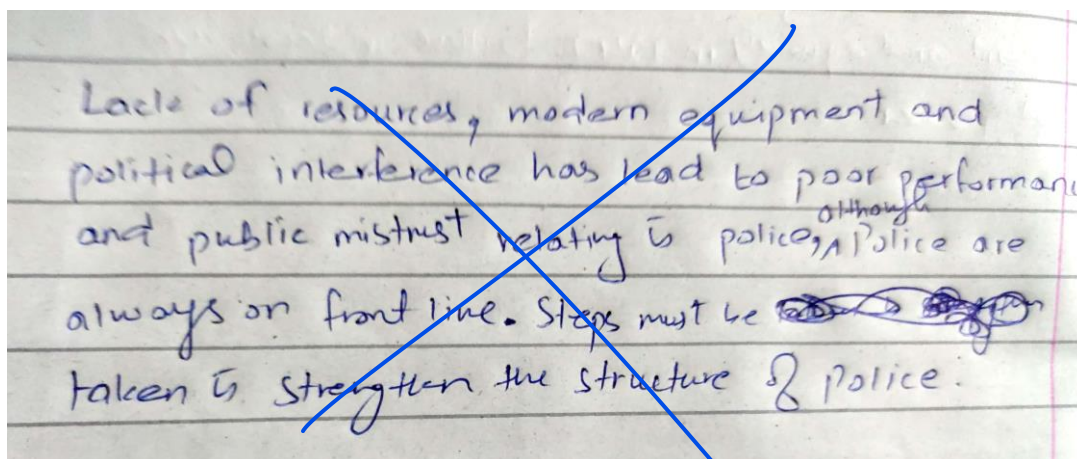 Lack of resources, modern equipment and
political interference has lead to poor performan
and public mistrust relating to police, although Police are
always on front line. Steps must be
taken to strengthen the structure of police.